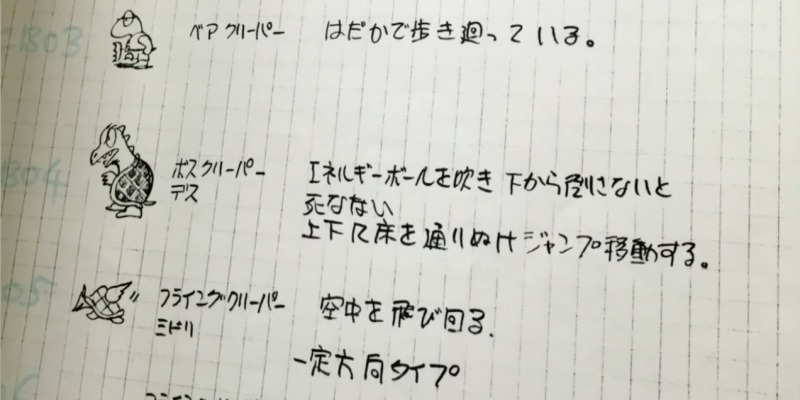 ベア クリーパー はだかで歩き廻っている。
ボスクリーパー
デス
エネルギーボールを吹き 下から倒さないと
死なない
上下に床を通りぬけジャンプ移動する。
フライングクリーパー
ミドリ
空中を飛び回る.
一定方向タイプ